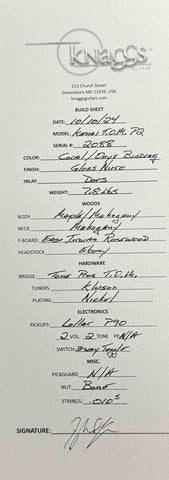 KNAGGS
GUITARS
213 Church Street
Greensboro MD 21639, USA
knaggsguitars.com
BUILD SHEET
DATE: 10/10/24
MODEL: Kenai T.O.M. P2
SERIAL #: 2088
COLOR: Coral/Onyx Binding
FINISH: Gloss Nitro
INLAY: Dots
WEIGHT: 7.8 Lbs
WOODS
BODY: Maple/Mahogany
NECK: Mahogany
F-BOARD: East Indian Rosewood
HEADSTOCK: Ebony
HARDWARE
BRIDGE: Tone Pros T.O.M.
TUNERS: Kluson
PLATING: Nickel
ELECTRONICS
PICKUPS: Lollar P90
2 VOL. 2 TONE PP N/A
SWITCH: 3-way Toggle
MISC.
PICKGUARD: N/A
NUT: Bone
STRINGS: .010s
SIGNATURE: